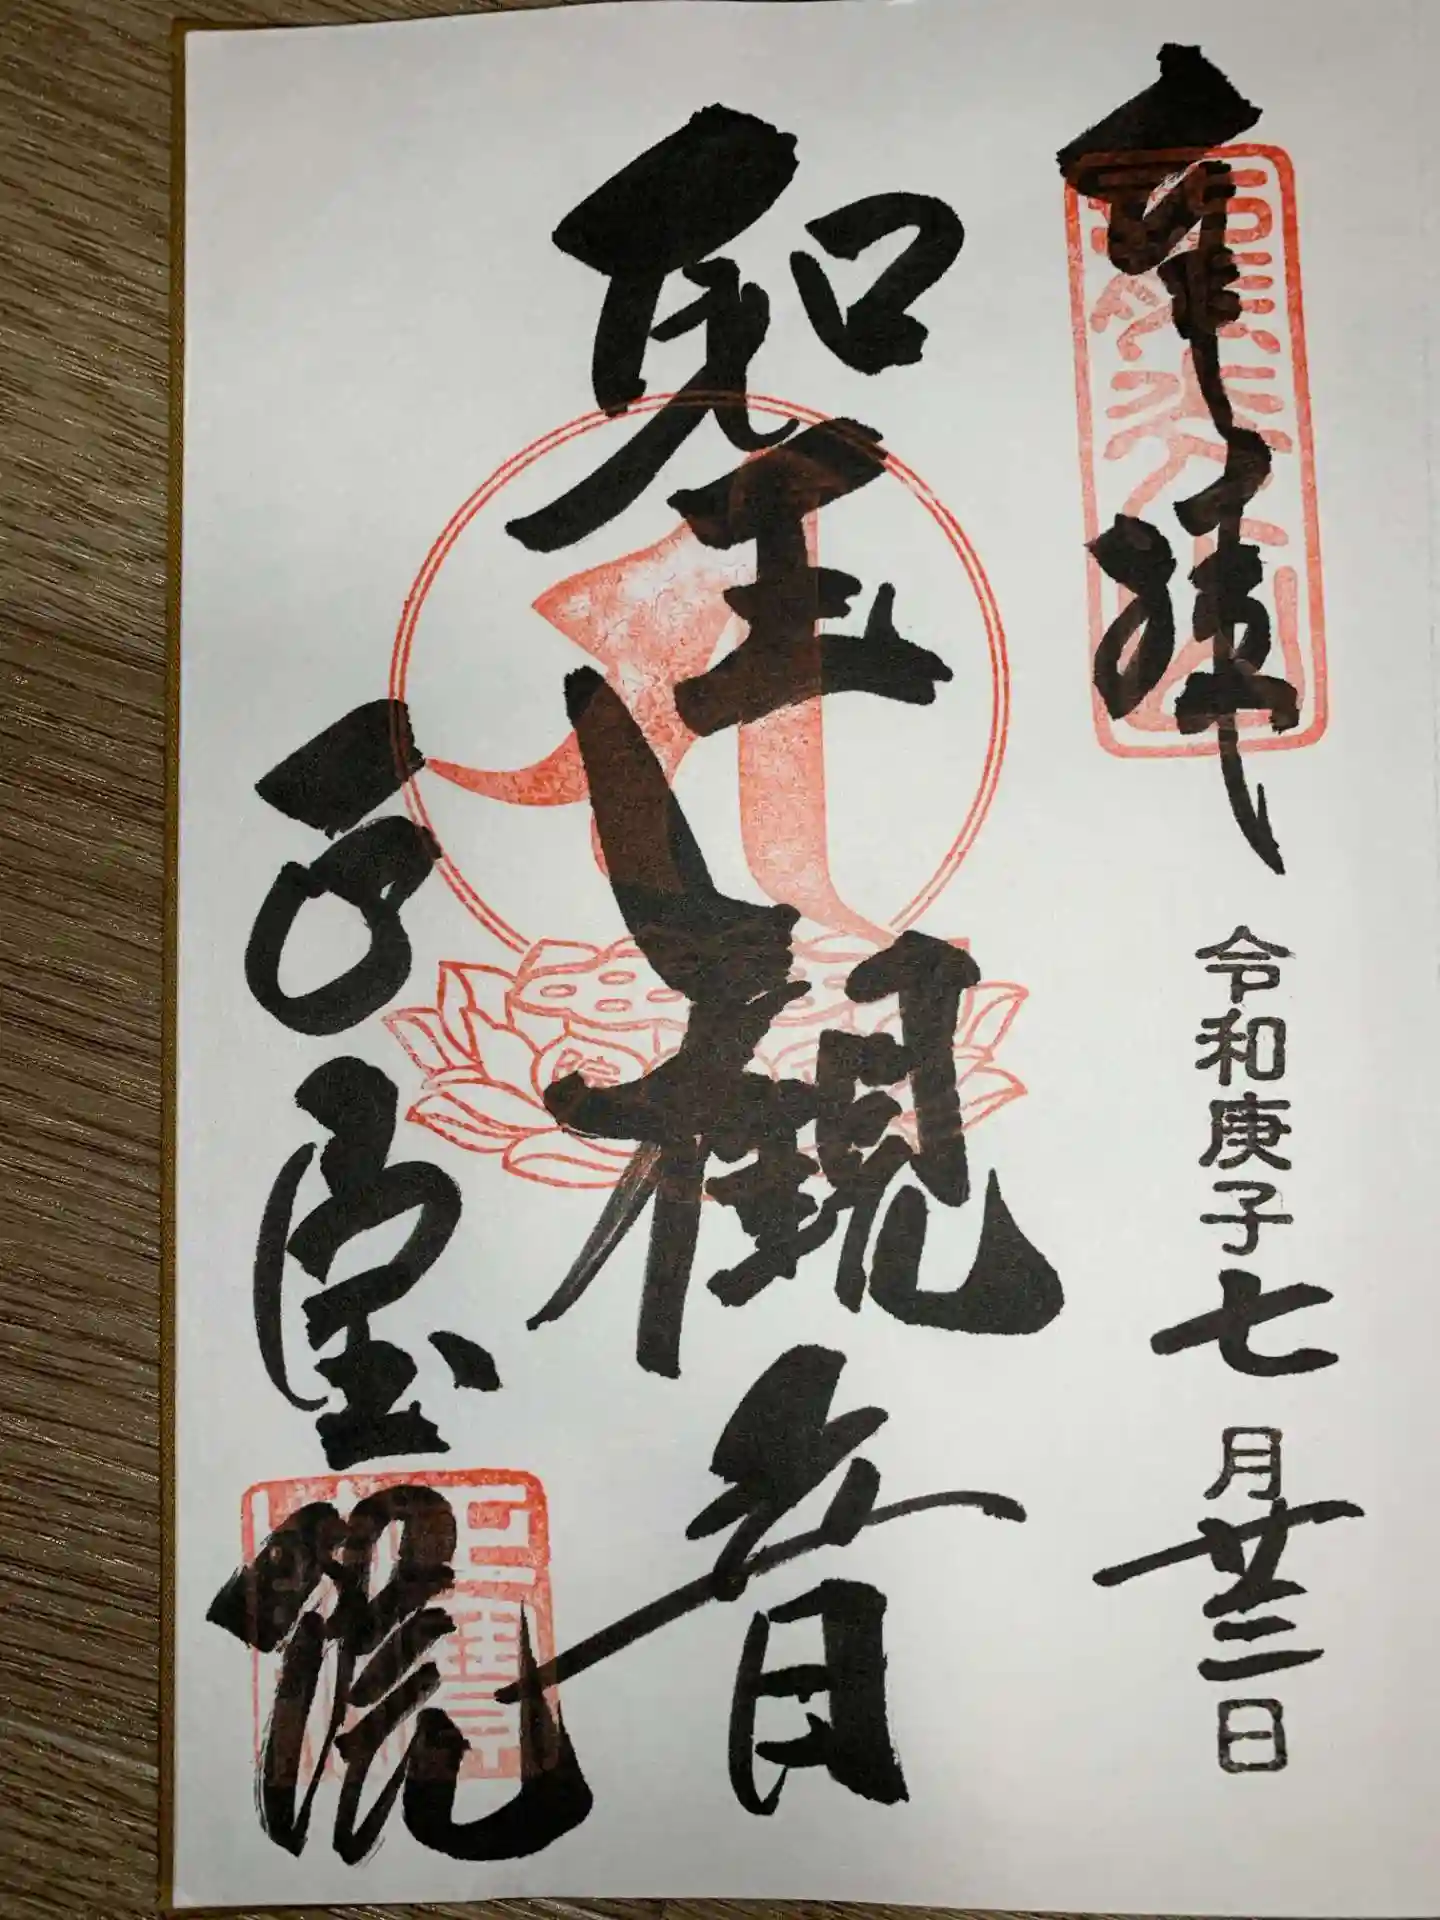 奉拝
令和庚子七月廿二日
聖観音
正宝院